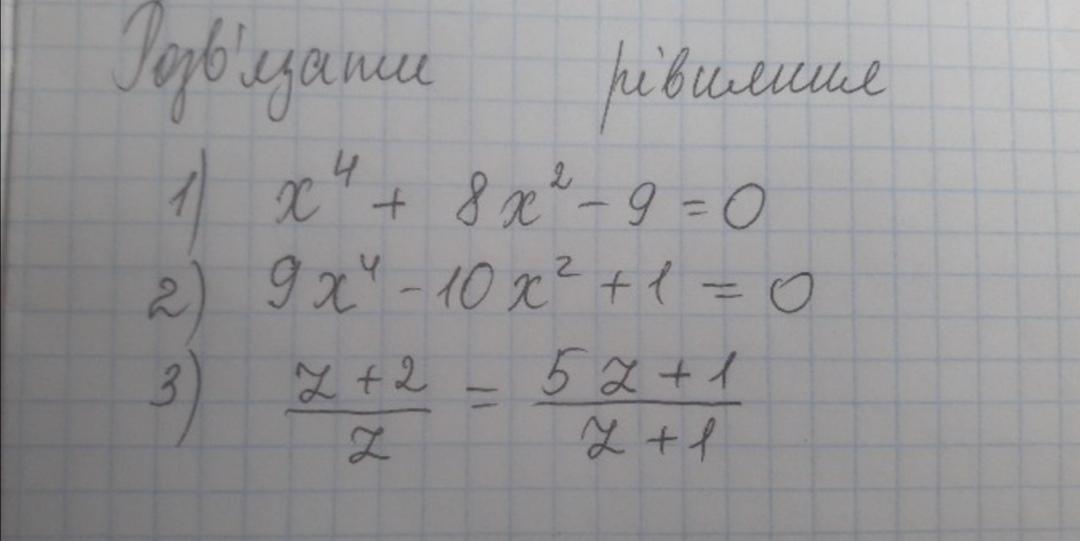 Розв'язати рівняння
1) x⁴ + 8x² - 9 = 0
2) 9x⁴ - 10x² + 1 = 0
3) \frac{z+2}{z} = \frac{5z+1}{z+1}